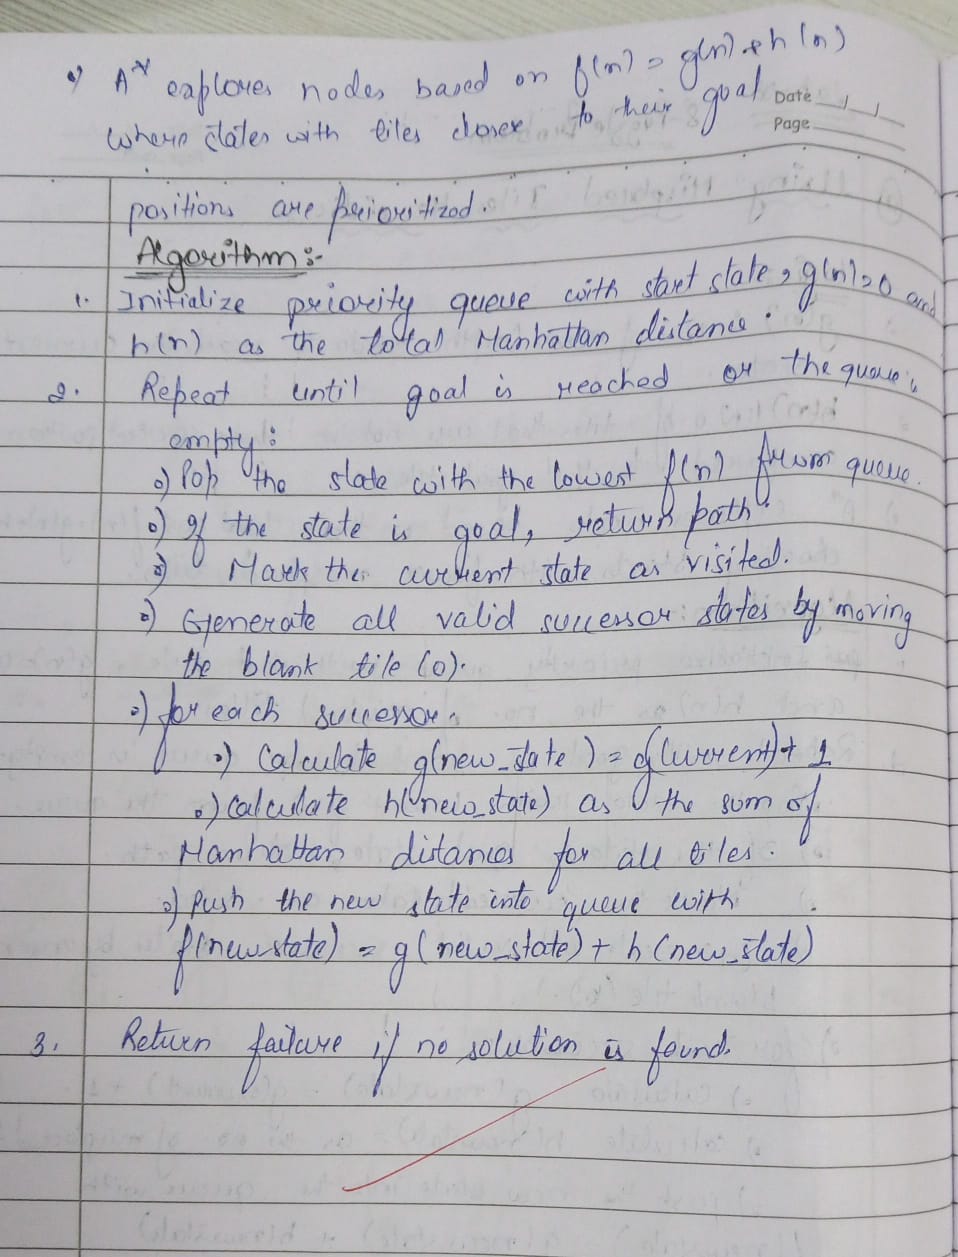 •) A* explores nodes based on f(n) = g(n) + h(n)
where states with tiles closer to their goal
Date
Page
positions are prioritized.
Algorithm :-
1. Initialize priority queue with start state, g(n)=0 and
h(n) as the total Manhattan distance.
2. Repeat until goal is reached or the queue is
empty :
•) Pop the state with the lowest f(n) from queue.
•) If the state is goal, return path.
•) Mark the current state as visited.
•) Generate all valid successor states by moving
the blank tile (0).
•) for each successor.
•) Calculate g(new_state) = g(current) + 1
•) calculate h(new_state) as the sum of
Manhattan distances for all tiles.
•) Push the new state into queue with
f(new state) = g(new_state) + h(new_state)
3. Return failure if no solution is found.